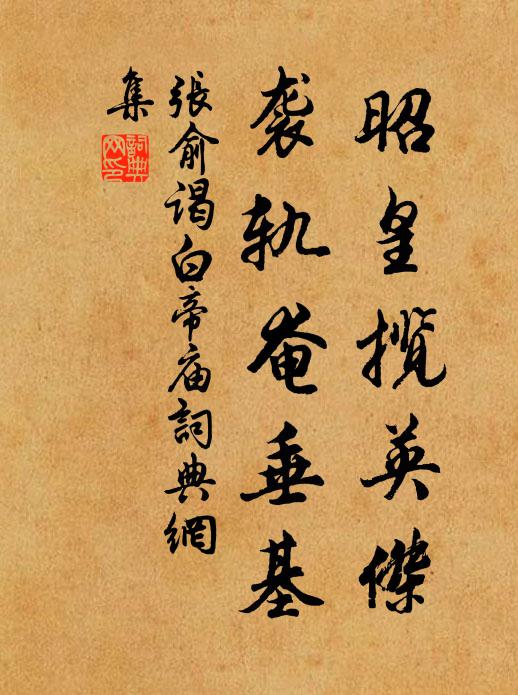 昭皇揽英傑
袭轨奄垂基
張俞谒白帝庙詞典網
集
詞典